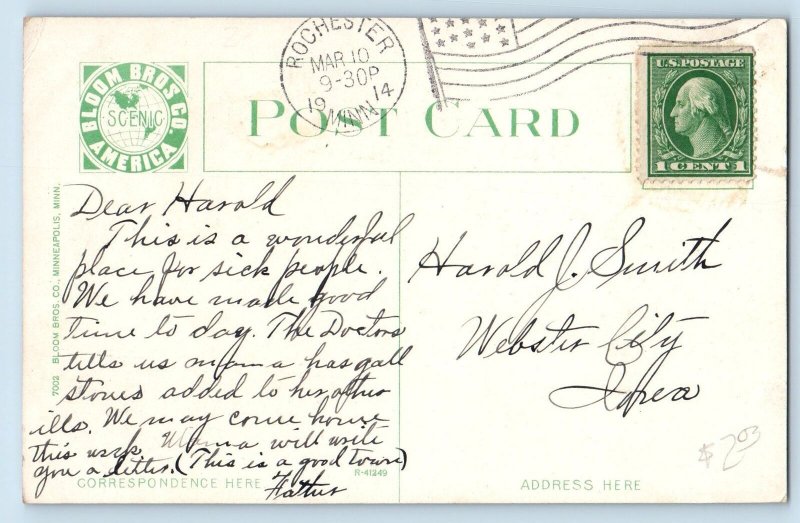 ROCHESTER
MAR 10
9-30P
19 14
MINN.
BLOOM BROS. CO.
SCENIC
AMERICA
POST CARD
U.S. POSTAGE
1 CENT 1
7002 BLOOM BROS. CO., MINNEAPOLIS, MINN.
Dear Harold
This is a wonderful
place for sick people.
We have made good
time to day. The Doctors
tells us mama has gall
stones added to her other
ills. We may come home
this week. Mama will write
you a letter. (This is a good town)
Father
CORRESPONDENCE HERE
R-41249
Harold J. Smith
Webster City
Iowa
ADDRESS HERE
$2.03